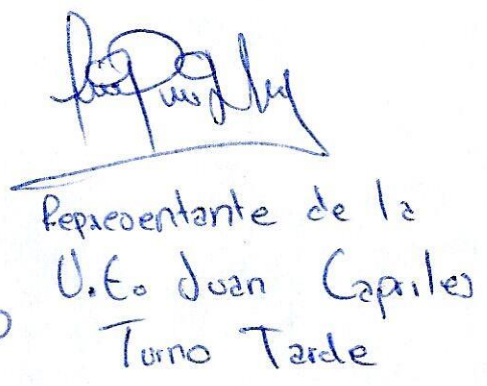 Representante de la
U.E. Juan Capriles
Turno Tarde